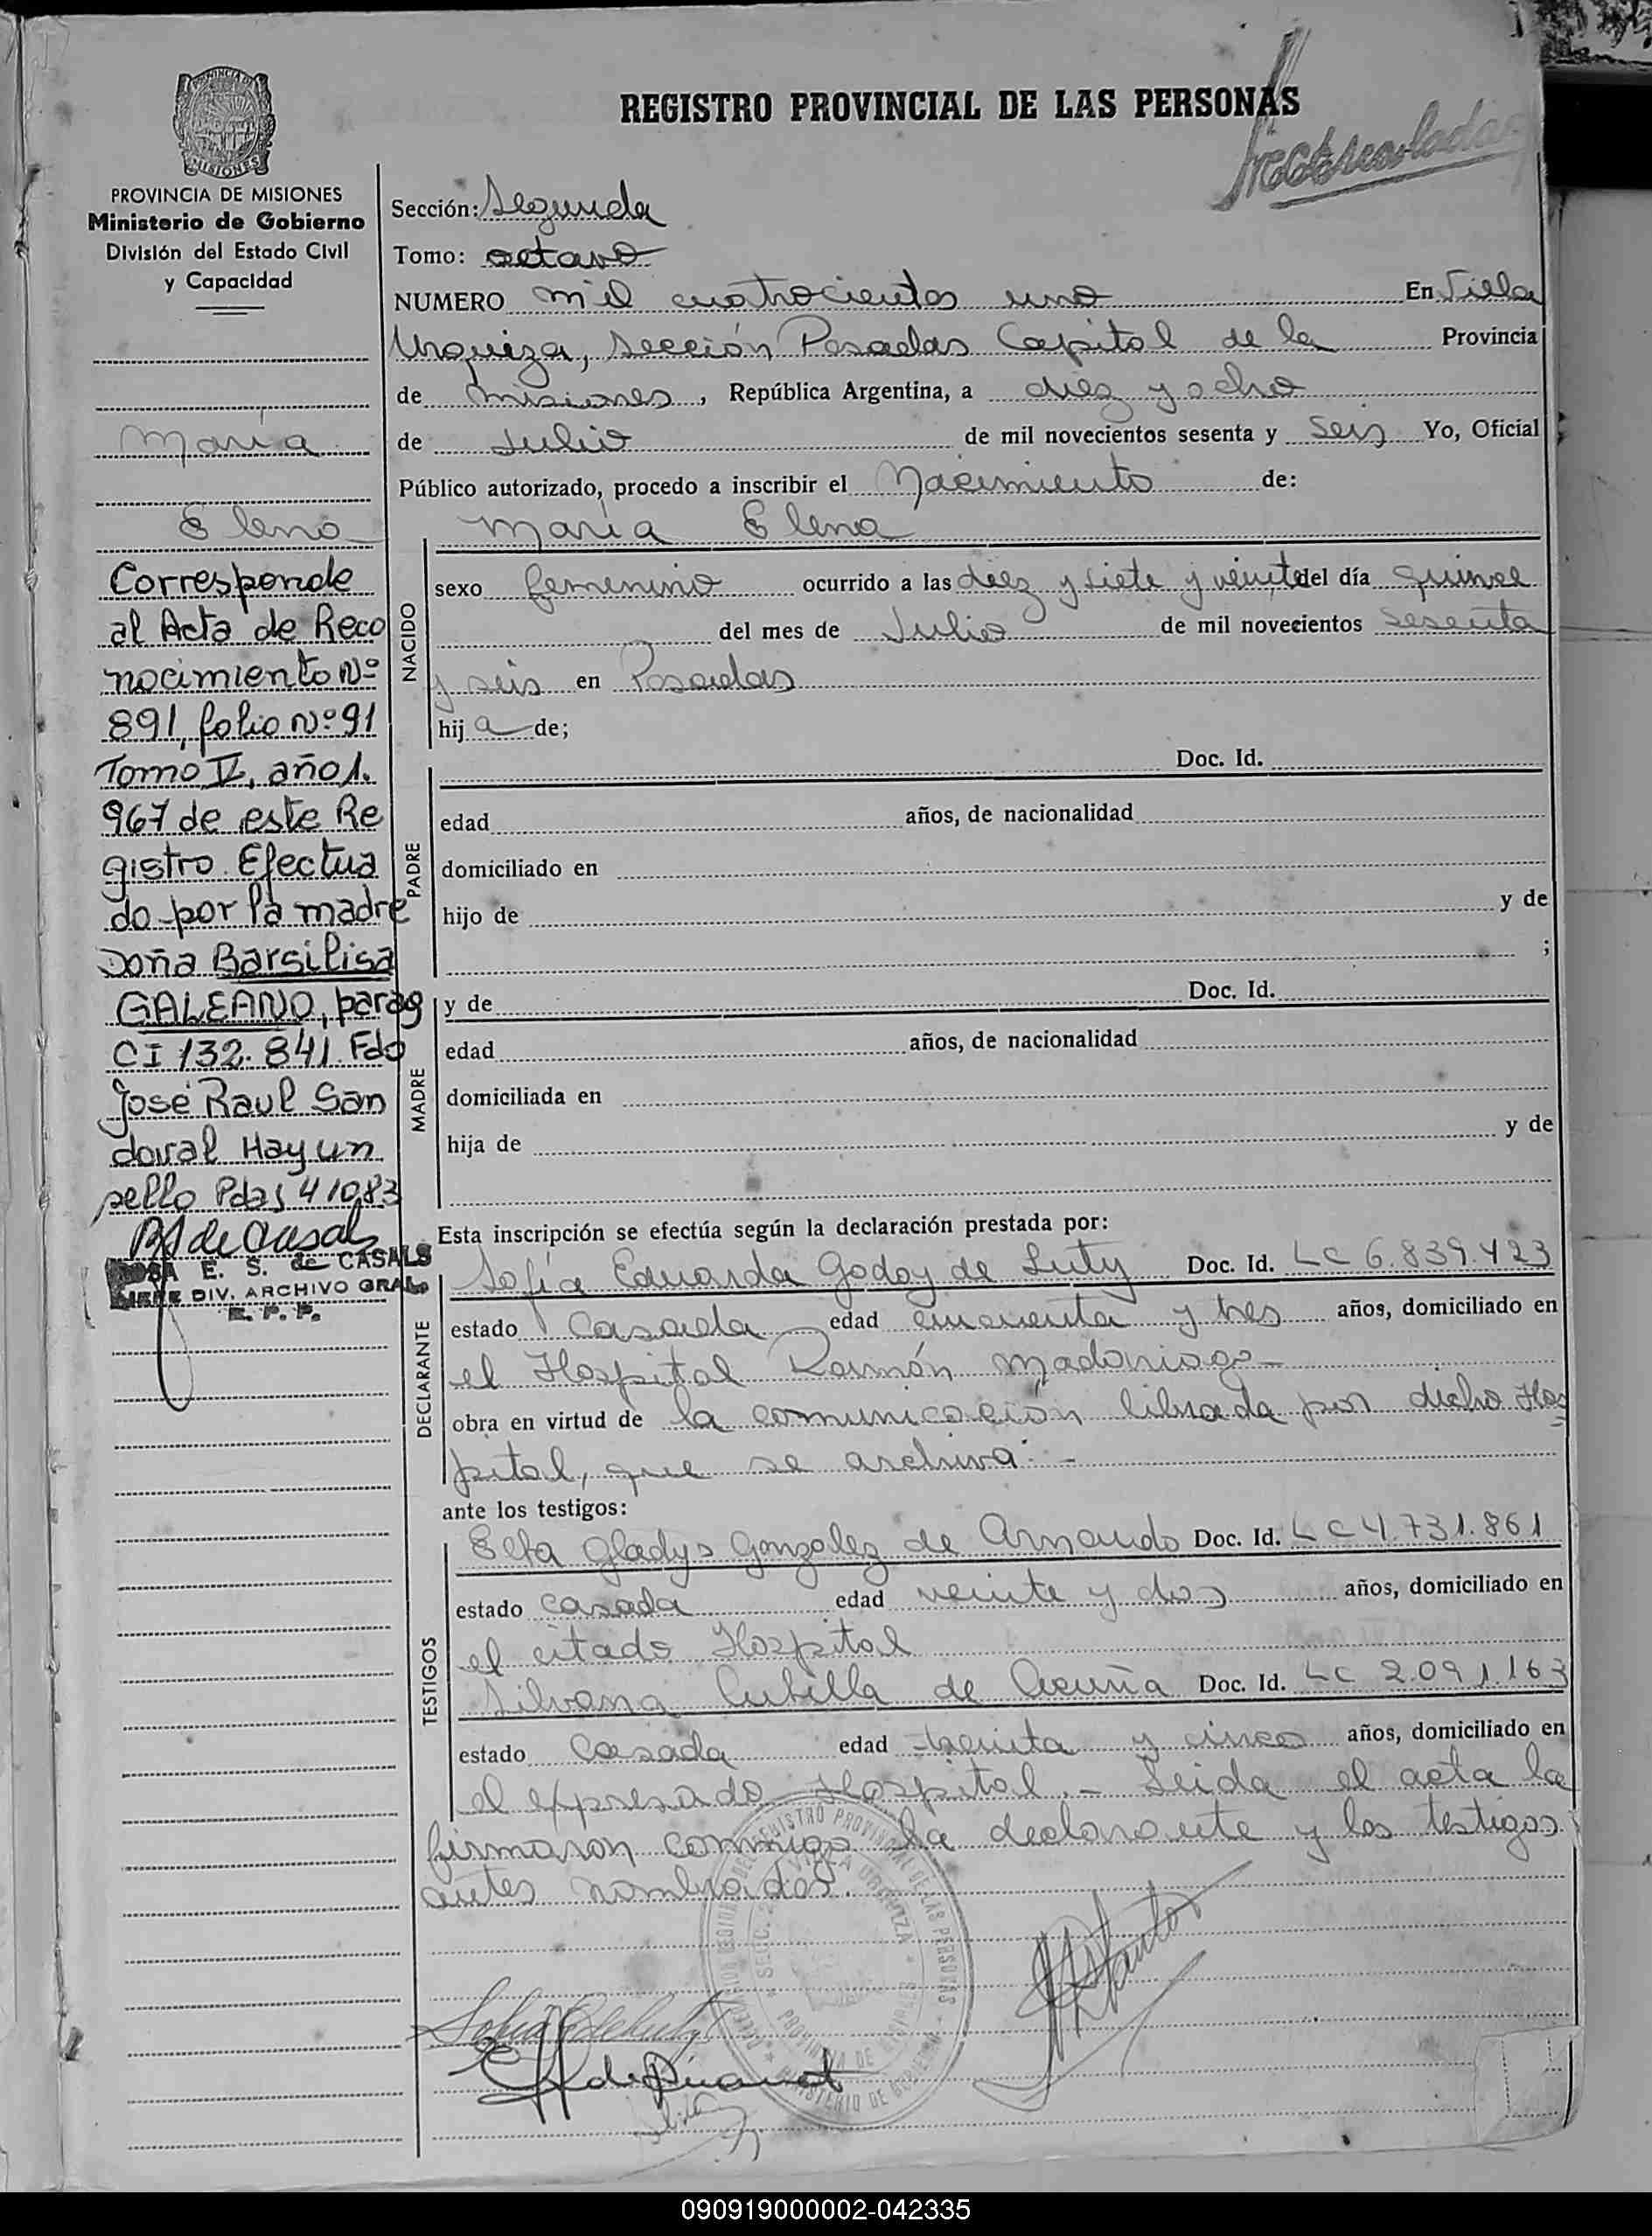 REGISTRO PROVINCIAL DE LAS PERSONAS
PROVINCIA DE MISIONES
Ministerio de Gobierno
División del Estado Civil
y Capacidad
María
Elena
Corresponde
al Acta de Reco
nocimiento Nº
891, folio Nº 91
Tomo V, año 1.
967 de este Re
gistro. Efectua
do por la madre
Doña Barsilisa
GALEANO, parag
CI 132.841. Fdo
José Raul San
doval Hay un
sello Pdas 4/10.83
E. S. de CASALS
JEFE DIV. ARCHIVO GRAL
R. P. P.
Sección: Segunda
Tomo: octavo
NUMERO mil cuatrocientos uno En Villa
Urquiza, Sección Posadas Capital de la Provincia
de Misiones, República Argentina, a diez y ocho
de Julio de mil novecientos sesenta y Seis Yo, Oficial
Público autorizado, procedo a inscribir el Nacimiento de:
NACIDO
María Elena
sexo femenino ocurrido a las diez y siete y veinte del día quince
del mes de Julio de mil novecientos sesenta
y seis en Posadas
hija de;
PADRE
Doc. Id.
edad años, de nacionalidad
domiciliado en
hijo de y de
;
MADRE
y de Doc. Id.
edad años, de nacionalidad
domiciliada en
hija de y de
Esta inscripción se efectúa según la declaración prestada por:
DECLARANTE
Sofía Eduarda Godoy de Luty Doc. Id. LC 6.839.423
estado Casada edad cincuenta y tres años, domiciliado en
el Hospital Ramón Madariaga
obra en virtud de la comunicación librada por dicho Hos
pital, que se archiva.-
ante los testigos:
TESTIGOS
Elta Gladys Gonzalez de Doc. Id. LC 4.731.861
estado casada edad veinte y dos años, domiciliado en
el citado Hospital
Silvana Cubilla de Acuña Doc. Id. LC 2.091.163
estado Casada edad treinta y cinco años, domiciliado en
el expresado Hospital.- Leida el acta la
firmaron conmigo la declarante y los testigos
antes nombrados.
SECC. 2 VILLA URQUIZA
PROVINCIA DE MISIONES
MINISTERIO DE GOBIERNO
090919000002-042335